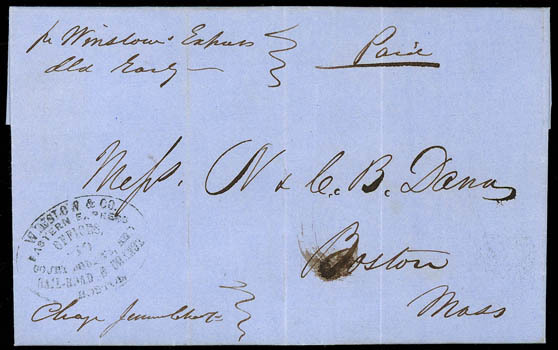 pr Winslow's Express
dld Early
Paid
Messrs. N & C. B. Dana
Boston
Mass
WINSLOW & CO.
EASTERN EXPRESS
OFFICES,
RAIL-ROAD
BOSTON
Charge